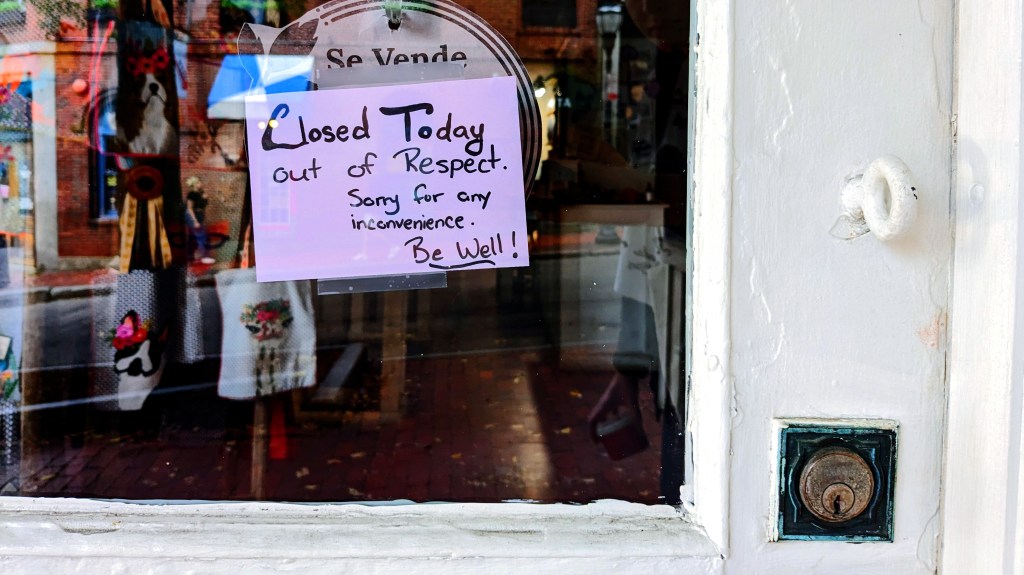 Se Vende
Closed Today
out of Respect.
Sorry for any
inconvenience.
Be Well!